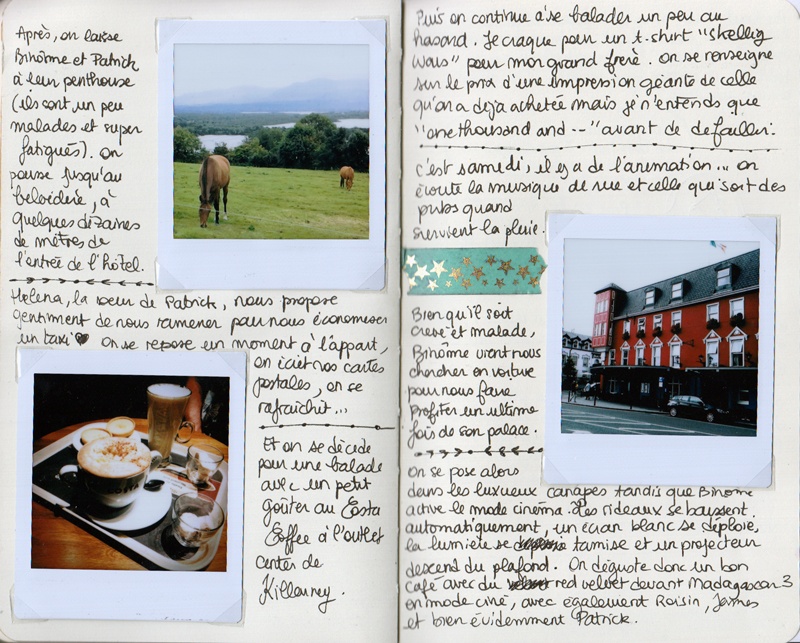 Après, on laisse
Binôme et Patrick
à leur penthouse
(ils sont un peu
malades et super
fatigués). On
pousse jusqu'au
belvédère, à
quelques dizaines
de mètres de
l'entrée de l'hôtel.
Helena, la soeur de Patrick, nous propose
gentiment de nous ramener pour nous économiser
un taxi ♥ On se repose un moment à l'appart,
on écrit nos cartes
postales, on se
rafraîchit...
Et on se décide
pour une balade
avec un petit
goûter au Costa
Coffee à l'outlet
center de
Killarney.
Puis on continue à se balader un peu au
hasard. Je craque pour un t-shirt "Skellig
Wars" pour mon grand frère. On se renseigne
sur le prix d'une impression géante de celle
qu'on a déjà achetée mais je n'entends que
"one thousand and --" avant de défaillir.
C'est samedi, il y a de l'animation... on
écoute la musique de rue et celle qui sort des
pubs quand
survient la pluie.
Bien qu'il soit
crevé et malade,
Binôme vient nous
chercher en voiture
pour nous faire
profiter un ultime
fois de son palace.
On se pose alors
dans les luxueux canapés tandis que Binôme
active le mode cinéma. Les rideaux se baissent
automatiquement, un écran blanc se déploie,
la lumière se tamise et un projecteur
descend du plafond. On déguste donc un bon
café avec du red velvet devant Madagascar 3
en mode ciné, avec également Roisin, James
et bien évidemment Patrick.